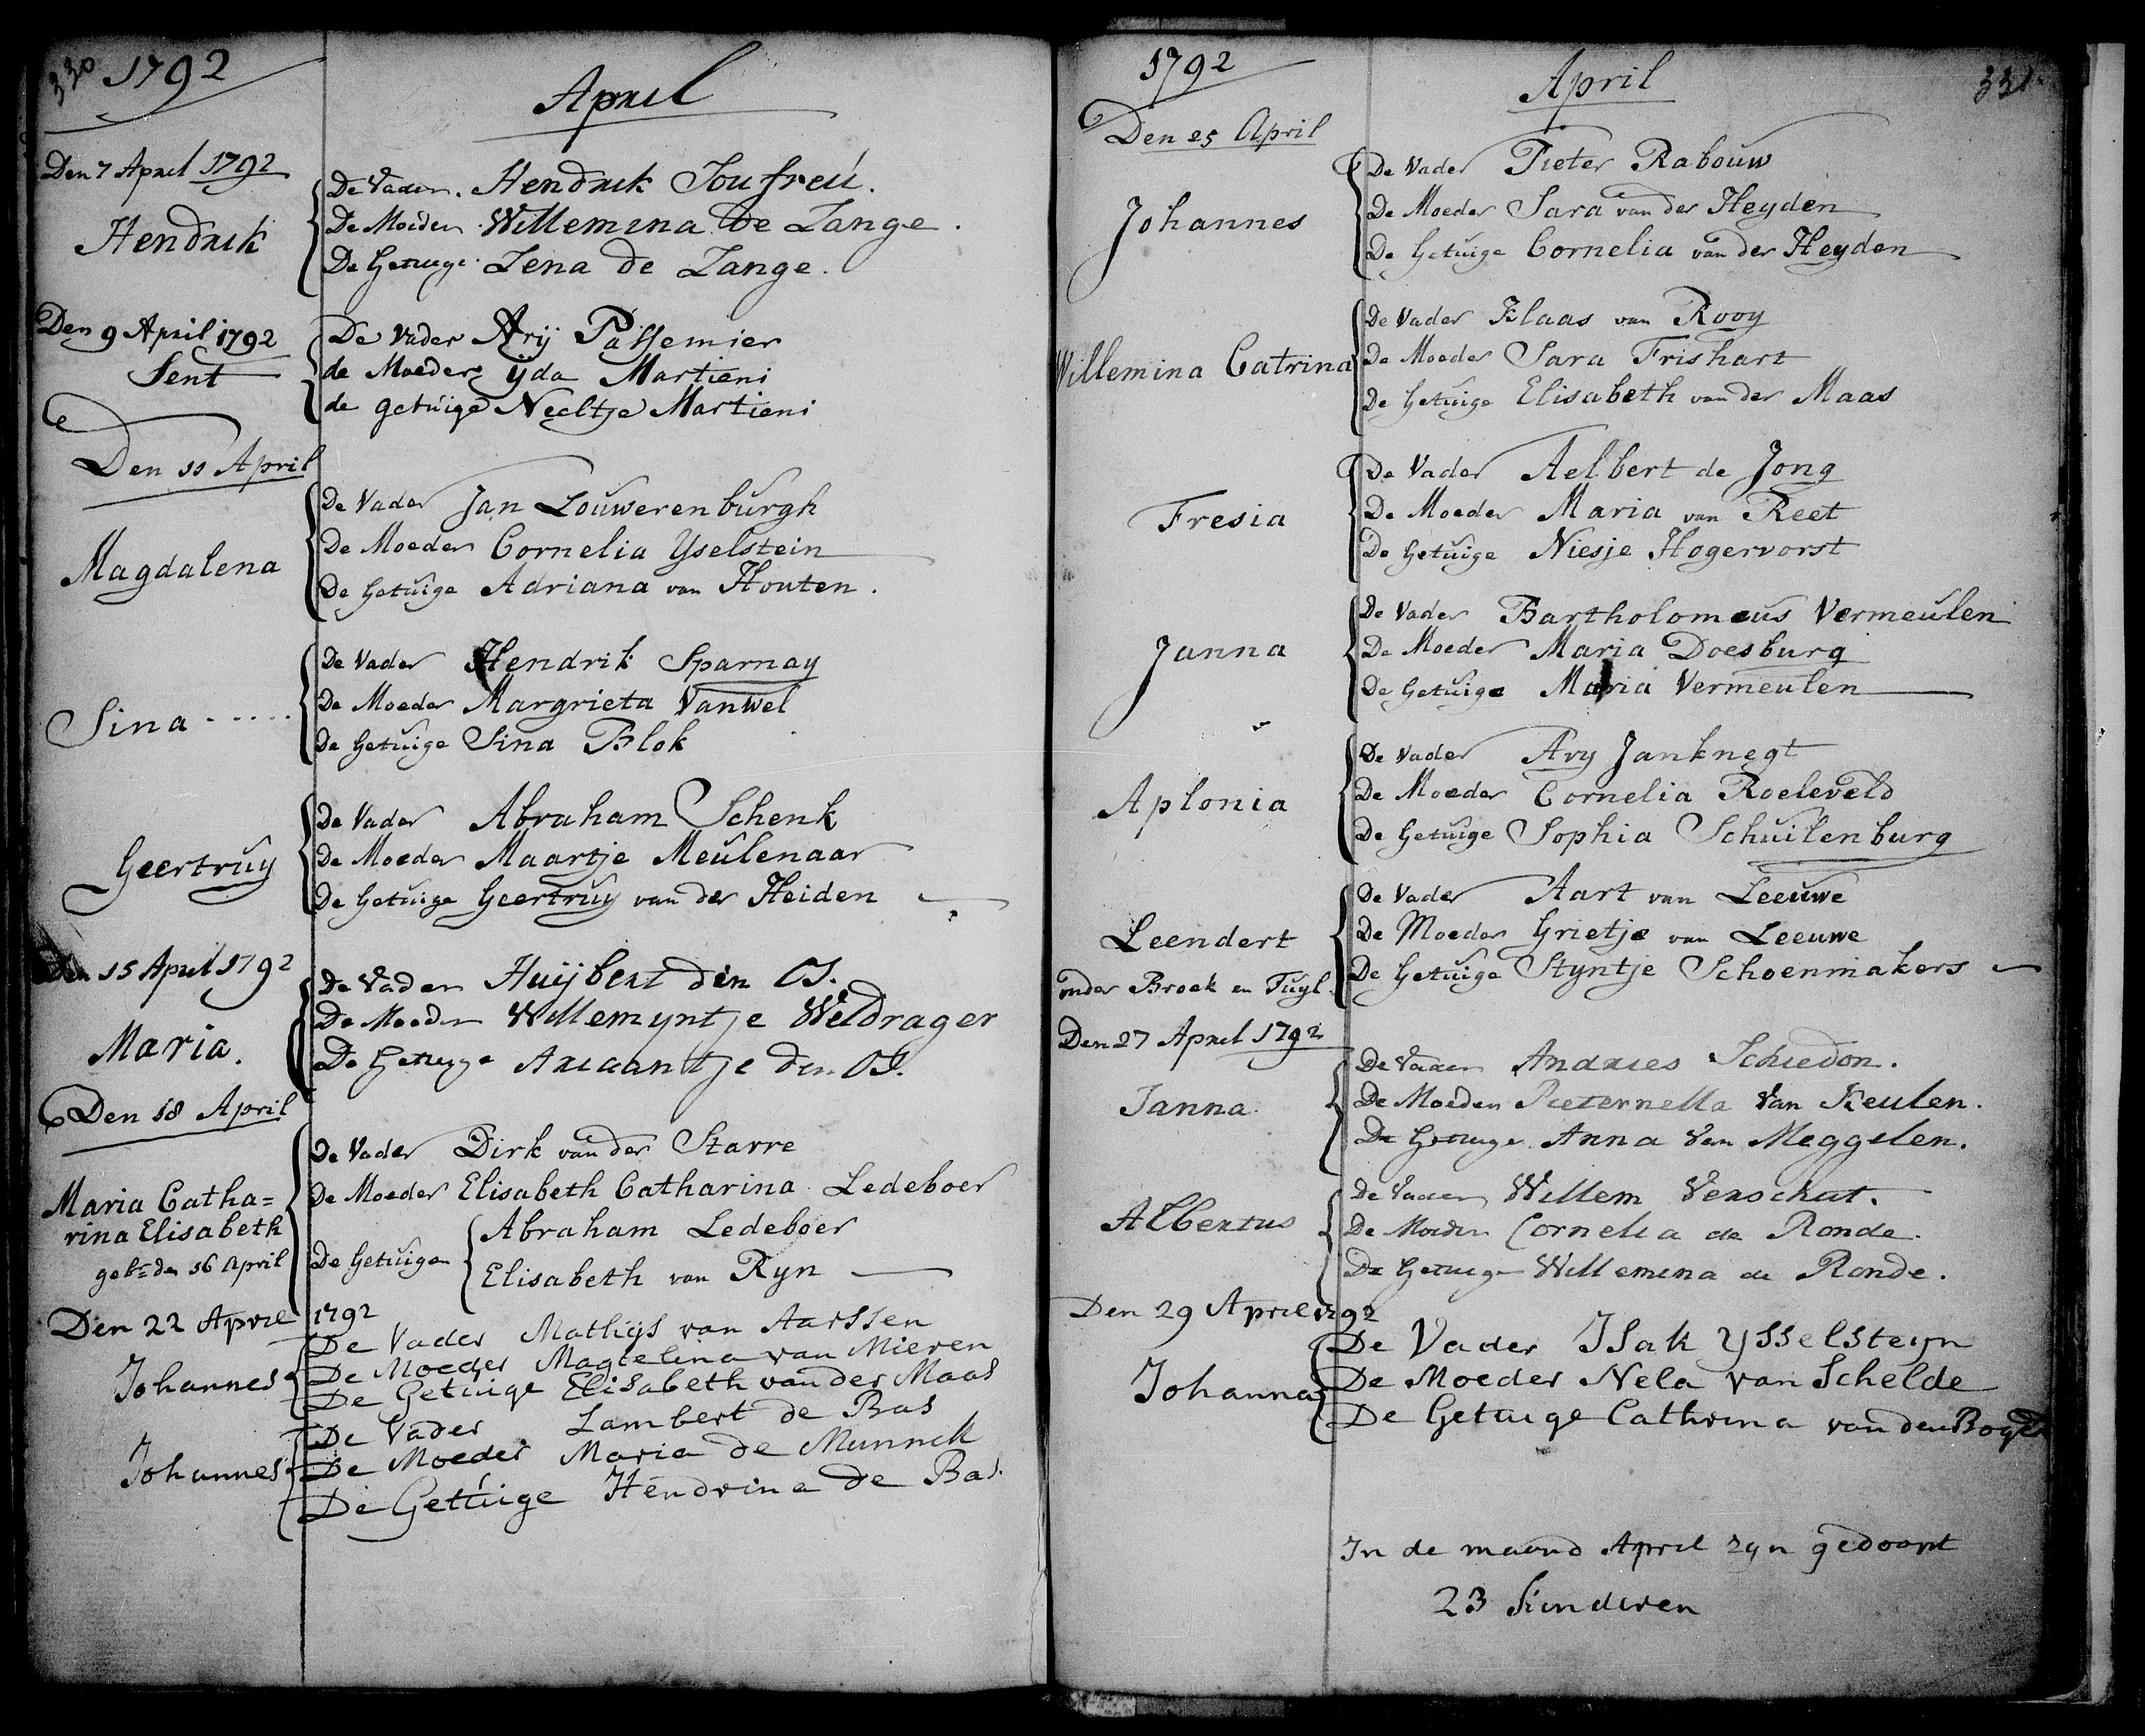 330 1792
April
Den 7 April 1792
Hendrik
De Vader. Hendrik Joufreú.
De Moeder Willemina De Lange.
De Getuige Lena de Lange.
Den 9 April 1792
Sent
De Vader Arij Passemier
de Moeder ijda Martieni
de getuige Neeltje Martieni
Den 11 April
Magdalena
De Vader Jan Louwerenburgh
De Moeder Cornelia Yselstein
De Getuige Adriana van Houten.
Sina
De Vader Hendrik Sparnay
De Moeder Margrieta Vanwel
De Getuige Sina Blok
Geertruy
De Vader Abraham Schenk
De Moeder Maartje Meulenaar
De Getuige Geertruy van der Heiden
Den 15 April 1792
Maria.
De Vader Huijbert den Os.
De Moeder Willemyntje Weldrager
De Getuige Ariaantje den Os.
Den 18 April
Maria Catha=
rina Elisabeth
geb. den 16 April
De Vader Dirk van der Starre
De Moeder Elisabeth Catharina Ledeboer
De Getuigen Abraham Ledeboer
Elisabeth van Ryn
Den 22 April 1792
Johannes
De Vader Mathijs van Aarssen
De Moeder Magtelina van Mieren
De Getuige Elisabeth van der Maas
Johannes
De Vader Lambert de Bas
De Moeder Maria de Munnik
De Getuige Hendrina de Bas.
1792
April
331
Den 25 April
Johannes
De Vader Pieter Rabouw
De Moeder Sara van der Heyden
De Getuige Cornelia van der Heyden
Willemina Catrina
De Vader Klaas van Rooy
De Moeder Sara Frishart
De Getuige Elisabeth van der Maas
Fresia
De Vader Aelbert de Jong
De Moeder Maria van Reet
De Getuige Niesje Hogervorst
Janna
De Vader Bartholomeus Vermeulen
De Moeder Maria Doesburg
De Getuige Maria Vermeulen
Aplonia
De Vader Ary Janknegt
De Moeder Cornelia Roeleveld
De Getuige Sophia Schuilenburg
Leendert
onder Broek en Tuyl.
De Vader Aart van Leeuwe
De Moeder Grietje van Leeuwe
De Getuige Styntje Schoenmakers
Den 27 April 1792
Janna
De Vader Andries Schiedon.
De Moeder Pieternella Van Keulen.
De Getuige Anna Van Meggelen.
Albertus
De Vader Willem Verschut.
De Moeder Cornelia de Ronde.
De Getuige Willemina de Ronde.
Den 29 April 1792
Johanna
De Vader Isak Ysselsteyn
De Moeder Nela van Schelde
De Getuige Cathrina van den
In de maand April zyn gedoopt
23 kinderen